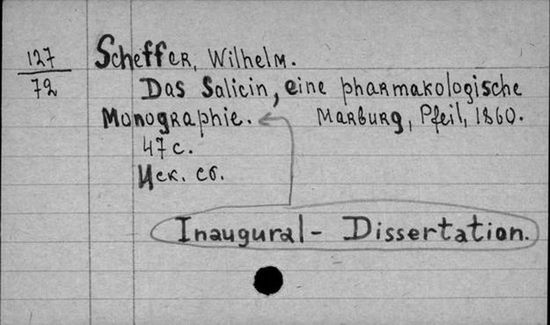 127
72
Scheffer, Wilhelm.
Das Salicin, eine pharmakologische
Monographie. Marburg, Pfeil, 1860.
47 с.
Иск. сб.
Inaugural - Dissertation.